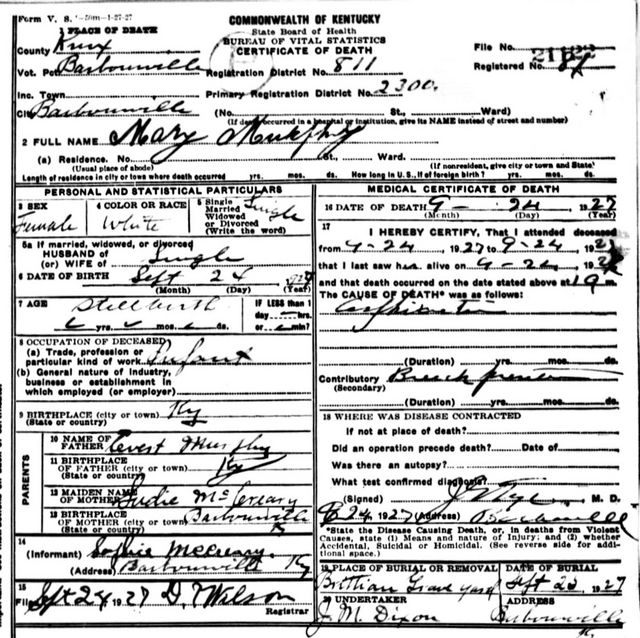 Form V. S. 1-27-27
COMMONWEALTH OF KENTUCKY
State Board of Health
BUREAU OF VITAL STATISTICS
CERTIFICATE OF DEATH
1 PLACE OF DEATH
County Knox
File No.
Vot. Pct Barbourville
Registration District No. 811
Registered No.
Inc. Town
Primary Registration District No. 2300
City Barbourville (No. St., Ward)
(If death occurred in a hospital or institution, give its NAME instead of street and number)
2 FULL NAME Mary Murphy
(a) Residence. No. St., Ward.
(Usual place of abode) (If nonresident, give city or town and State)
Length of residence in city or town where death occurred yrs. mos. ds. How long in U. S., if of foreign birth? yrs. mos. ds.
PERSONAL AND STATISTICAL PARTICULARS
3 SEX Female
4 COLOR OR RACE White
5 Single Married Widowed or Divorced (Write the word) Single
5a If married, widowed, or divorced
HUSBAND of
(or) WIFE of Single
6 DATE OF BIRTH Sept 24 1927
(Month) (Day) (Year)
7 AGE Stillbirth
yrs. mos. ds.
IF LESS than 1 day hrs. or min?
8 OCCUPATION OF DECEASED
(a) Trade, profession or particular kind of work Infant
(b) General nature of Industry, business or establishment in which employed (or employer)
9 BIRTHPLACE (city or town) Ky
(State or country)
PARENTS
10 NAME OF FATHER Murphy
11 BIRTHPLACE OF FATHER (city or town) Ky
(State or country)
12 MAIDEN NAME OF MOTHER McCreary
13 BIRTHPLACE OF MOTHER (city or town) Barbourville
(State or country) K
14
(Informant) Sophie McCreary
(Address) Barbourville Ky
15
Filed Sept 24 1927 D. T. Wilson
Registrar
MEDICAL CERTIFICATE OF DEATH
16 DATE OF DEATH 9 - 24 1927
(Month) (Day) (Year)
17
I HEREBY CERTIFY, That I attended deceased
from 9-24, 1927 to 9-24, 192
that I last saw h alive on 9-24, 192
and that death occurred on the date stated above at 19 m.
The CAUSE OF DEATH* was as follows:
(Duration) yrs. mos. ds.
Contributory Breech
(Secondary)
(Duration) yrs. mos. ds.
18 WHERE WAS DISEASE CONTRACTED
If not at place of death?
Did an operation precede death? Date of
Was there an autopsy?
What test confirmed diagnosis?
(Signed) M. D.
24, 1927 (Address)
*State the Disease Causing Death, or, in deaths from Violent Causes, state (1) Means and nature of Injury; and (2) whether Accidental, Suicidal or Homicidal. (See reverse side for additional space.)
19 PLACE OF BURIAL OR REMOVAL DATE OF BURIAL
Brittian Grave yard Sept 1927
20 UNDERTAKER ADDRESS
J. M. Dixon Barbourville
K.